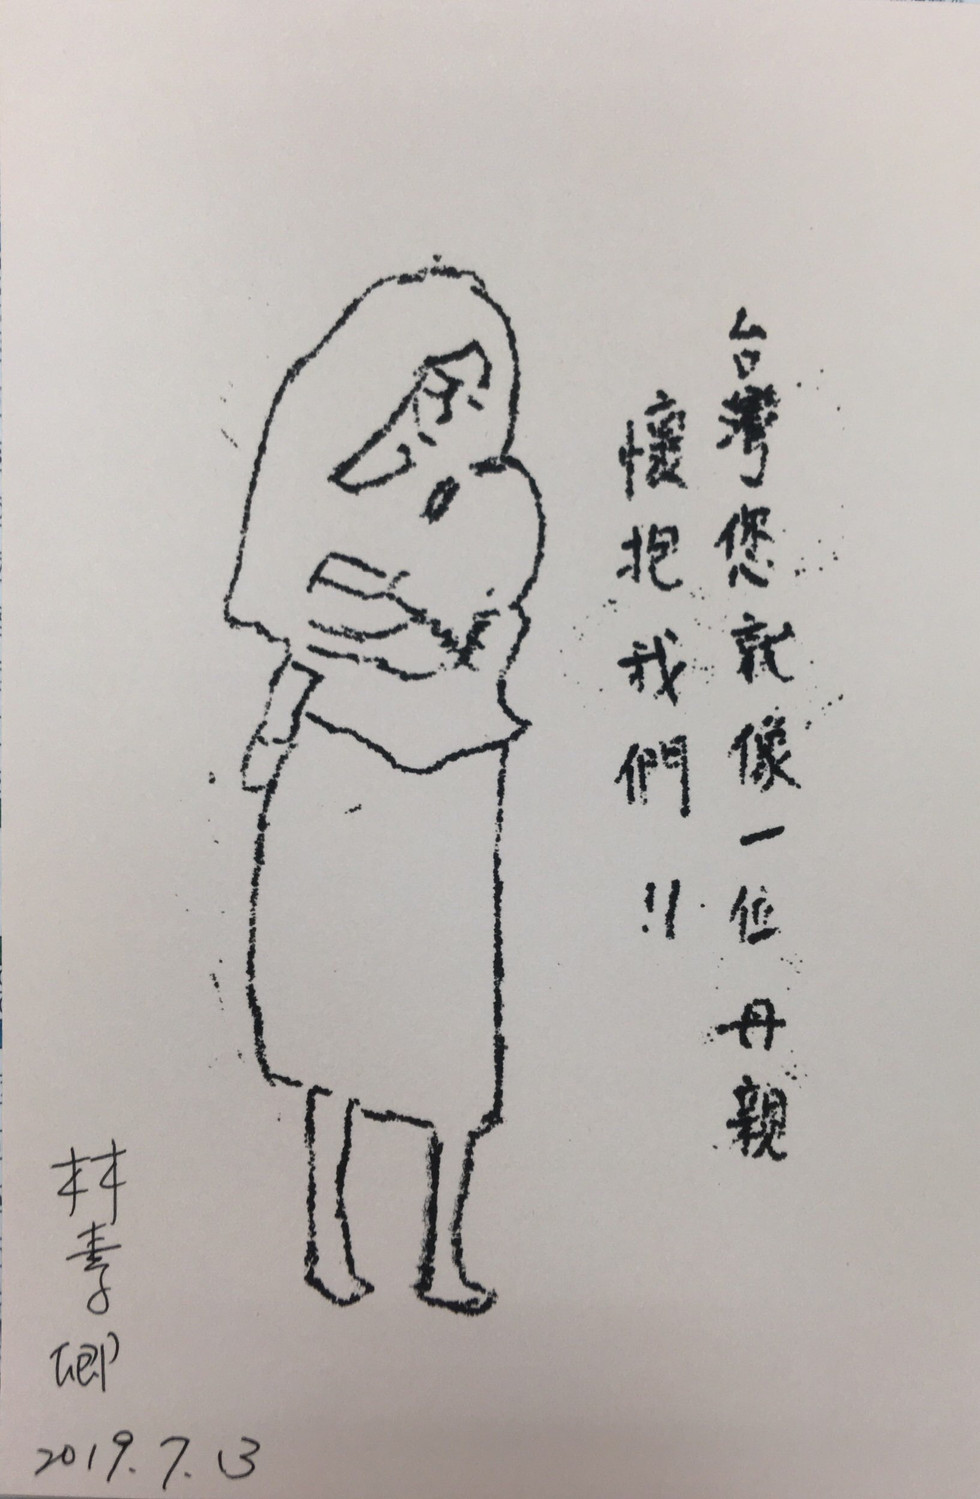 台灣您就像一位母親
懷抱我們!!
林素卿
2019.7.13